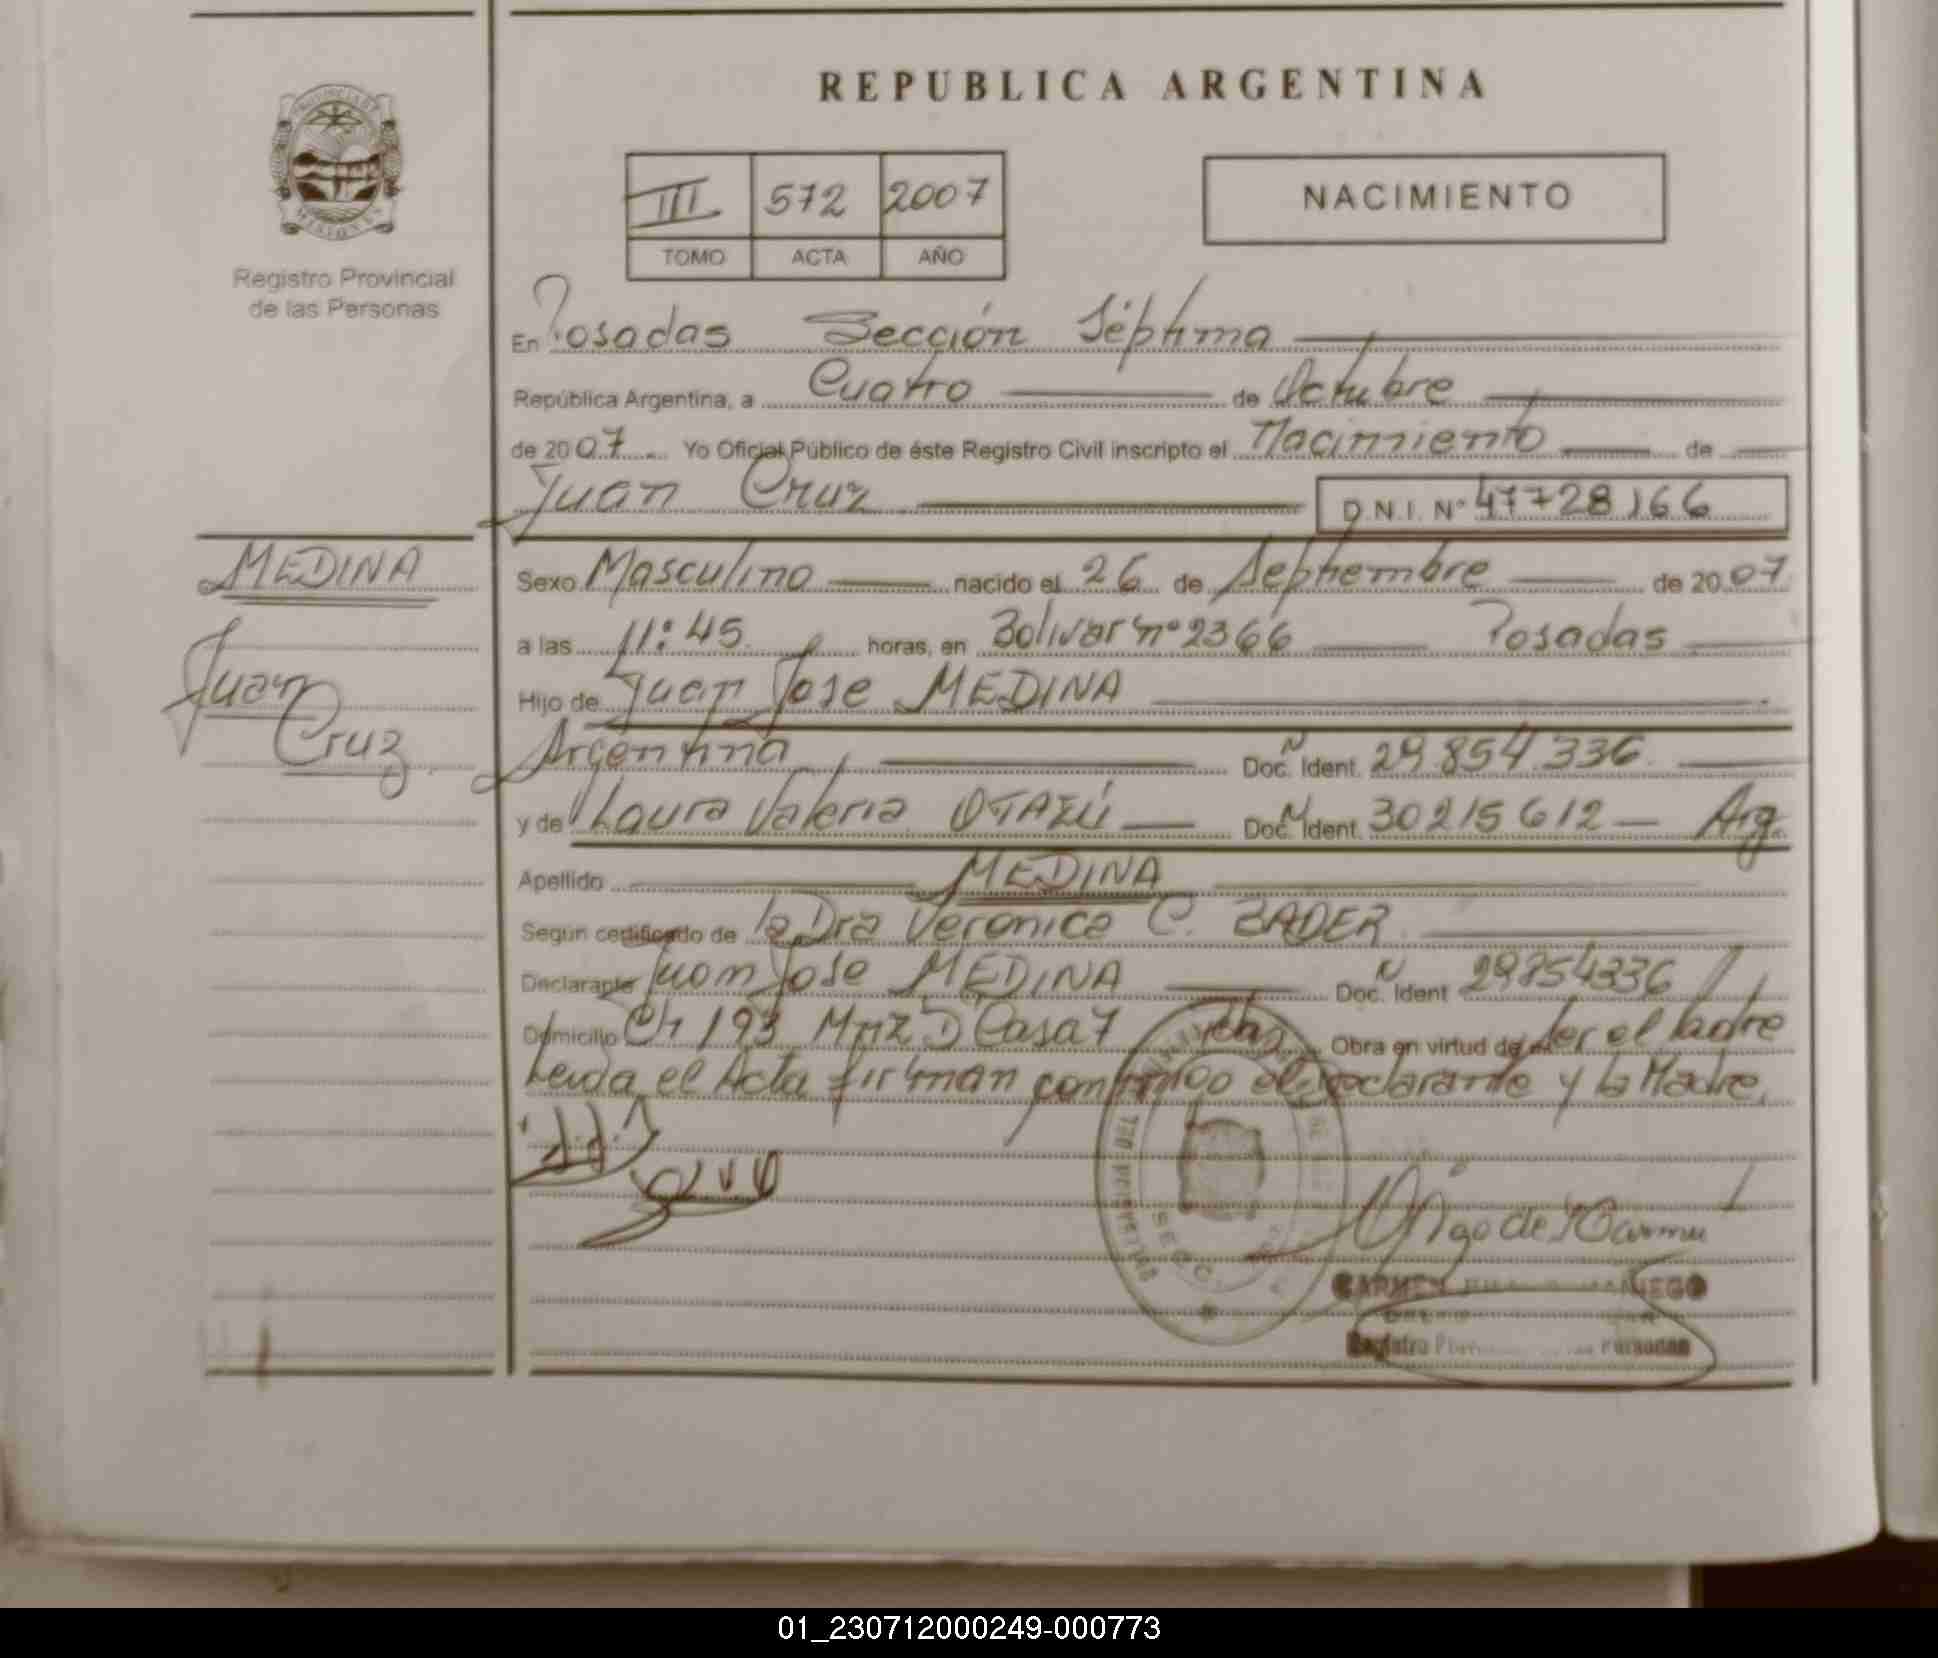 REPUBLICA ARGENTINA
III 572 2007
TOMO ACTA AÑO
NACIMIENTO
Registro Provincial
de las Personas
En Posadas Sección Séptima
República Argentina, a Cuatro de Octubre
de 2007 Yo Oficial Público de éste Registro Civil inscripto el Nacimiento de
Juan Cruz D.N.I. Nº 47728166
MEDINA
Juan
Cruz
Sexo Masculino nacido el 26 de Septiembre de 2007
a las 11:45 horas, en Bolivar nº 2366 Posadas
Hijo de Juan Jose MEDINA
Argentina Doc. Ident. 29.854.336
y de Laura Valeria OTAZÚ Doc. Ident. 30215612 Arg.
Apellido MEDINA
Según certificado de la Dra Veronica C. BADER
Declarante Juan Jose MEDINA Doc. Ident 29854336
Domicilio Ch 193 Mnz D Casa 7 Pdas Obra en virtud de ser el Padre
Leida el Acta firman conmigo el declarante y la Madre.
CARMEN
Registro Personas
01_230712000249-000773